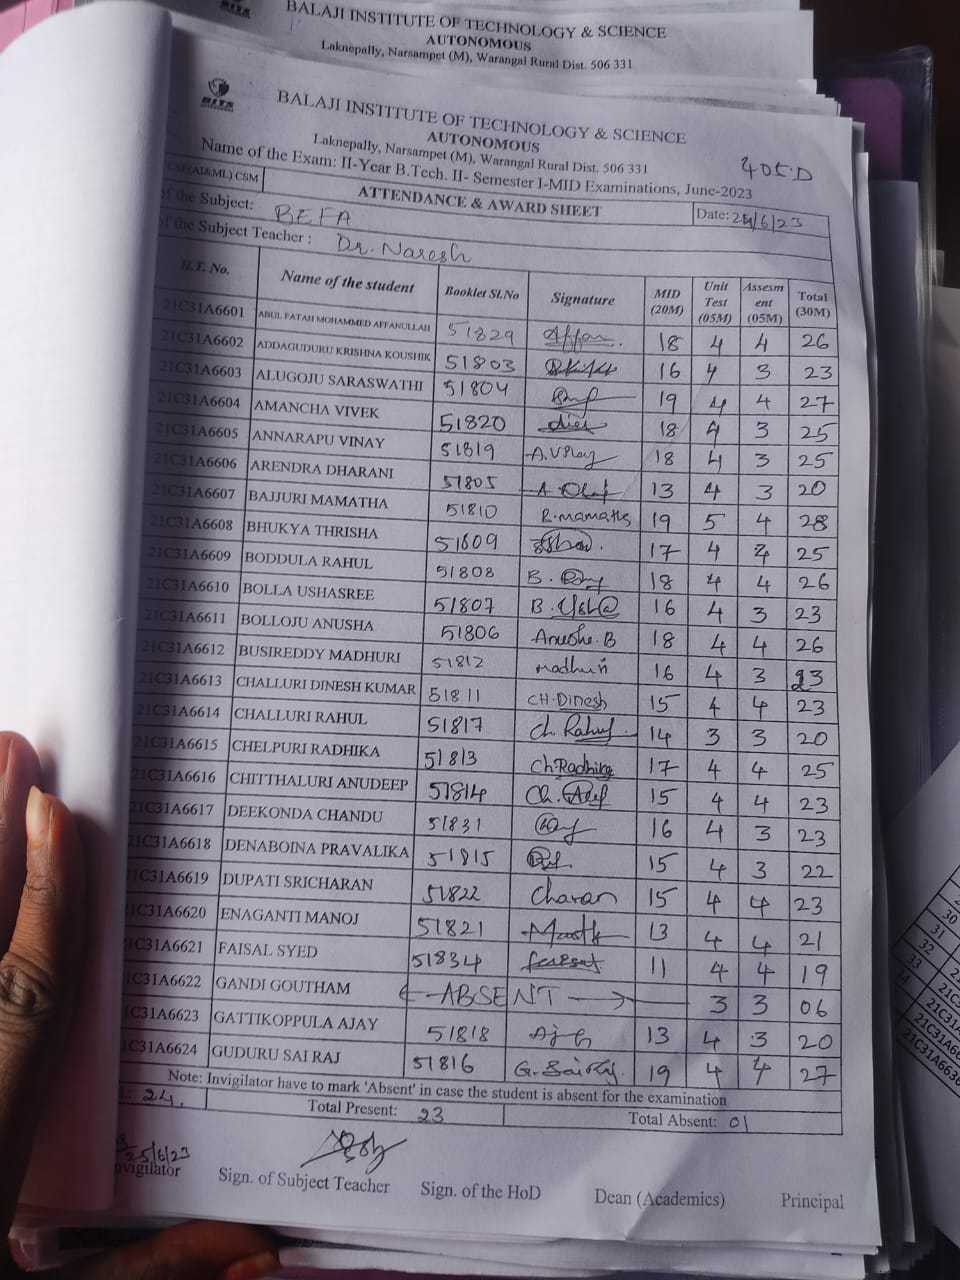 BALAJI INSTITUTE OF TECHNOLOGY & SCIENCE
AUTONOMOUS
Laknepally, Narsampet (M), Warangal Rural Dist. 506 331
BITS
BALAJI INSTITUTE OF TECHNOLOGY & SCIENCE
AUTONOMOUS
Laknepally, Narsampet (M), Warangal Rural Dist. 506 331
405.D
Name of the Exam: II-Year B.Tech. II- Semester I-MID Examinations, June-2023
CSE(AI&ML) CSM ATTENDANCE & AWARD SHEET Date: 24/6/23
of the Subject: BEFA
of the Subject Teacher : Dr. Naresh
H.T. No. Name of the student Booklet Sl.No Signature MID (20M) Unit Test (05M) Assesment (05M) Total (30M)
21C31A6601 ABUL FATAH MOHAMMED AFFANULLAH 51829 Affan 18 4 4 26
21C31A6602 ADDAGUDURU KRISHNA KOUSHIK 51803 16 4 3 23
21C31A6603 ALUGOJU SARASWATHI 51804 19 4 4 27
21C31A6604 AMANCHA VIVEK 51820 18 4 3 25
21C31A6605 ANNARAPU VINAY 51819 18 4 3 25
21C31A6606 ARENDRA DHARANI 51805 13 4 3 20
21C31A6607 BAJJURI MAMATHA 51810 19 5 4 28
21C31A6608 BHUKYA THRISHA 51809 17 4 4 25
21C31A6609 BODDULA RAHUL 51808 18 4 4 26
21C31A6610 BOLLA USHASREE 51807 16 4 3 23
21C31A6611 BOLLOJU ANUSHA 51806 Anusha.B 18 4 4 26
21C31A6612 BUSIREDDY MADHURI 51812 madhuri 16 4 3 23
21C31A6613 CHALLURI DINESH KUMAR 51811 CH.Dinesh 15 4 4 23
21C31A6614 CHALLURI RAHUL 51817 Ch. Rahul 14 3 3 20
21C31A6615 CHELPURI RADHIKA 51813 Ch.Radhika 17 4 4 25
21C31A6616 CHITTHALURI ANUDEEP 51814 15 4 4 23
21C31A6617 DEEKONDA CHANDU 51831 16 4 3 23
21C31A6618 DENABOINA PRAVALIKA 51815 15 4 3 22
21C31A6619 DUPATI SRICHARAN 51822 Charan 15 4 4 23
21C31A6620 ENAGANTI MANOJ 51821 13 4 4 21
21C31A6621 FAISAL SYED 51834 11 4 4 19
21C31A6622 GANDI GOUTHAM ABSENT 3 3 06
21C31A6623 GATTIKOPPULA AJAY 51818 13 4 3 20
21C31A6624 GUDURU SAI RAJ 51816 G. Sai Raj 19 4 4 27
Note: Invigilator have to mark 'Absent' in case the student is absent for the examination
24. Total Present: 23 Total Absent: 01
25/6/23
Invigilator Sign. of Subject Teacher Sign. of the HoD Dean (Academics) Principal
30
31
32
33
34